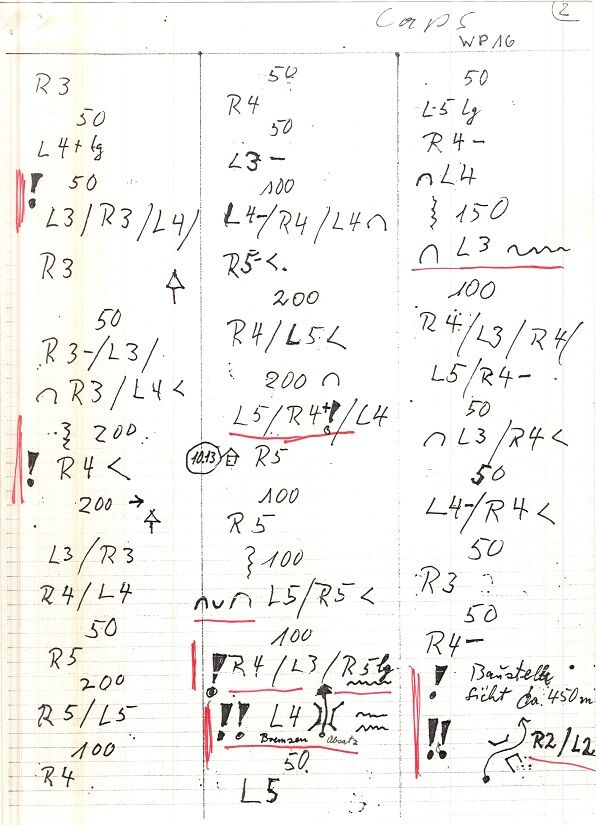 2
Caps
WP16
R3
50
L4+ lg
! 50
L3/R3/L4/
R3
50
R3-/L3/
∩ R3/L4<
200
! R4<
200 →
L3/R3
R4/L4
50
R5
200
R5/L5
100
R4
50
R4
50
L3-
100
L4-/R4/L4∩
R5-<
200
R4/L5<
200 ∩
L5/R4+!/L4
10.13 R5
100
R5
100
∩∪∩ L5/R5<
100
! R4/L3/R5lg
!! L4
Bremsen Absatz
50
L5
50
L5 lg
R4-
∩L4
150
∩ L3
100
R4/L3/R4/
L5/R4-
50
∩ L3/R4<
50
L4-/R4<
50
R3
50
R4-
! Baustelle
sicht ca. 450m
!! R2/L2